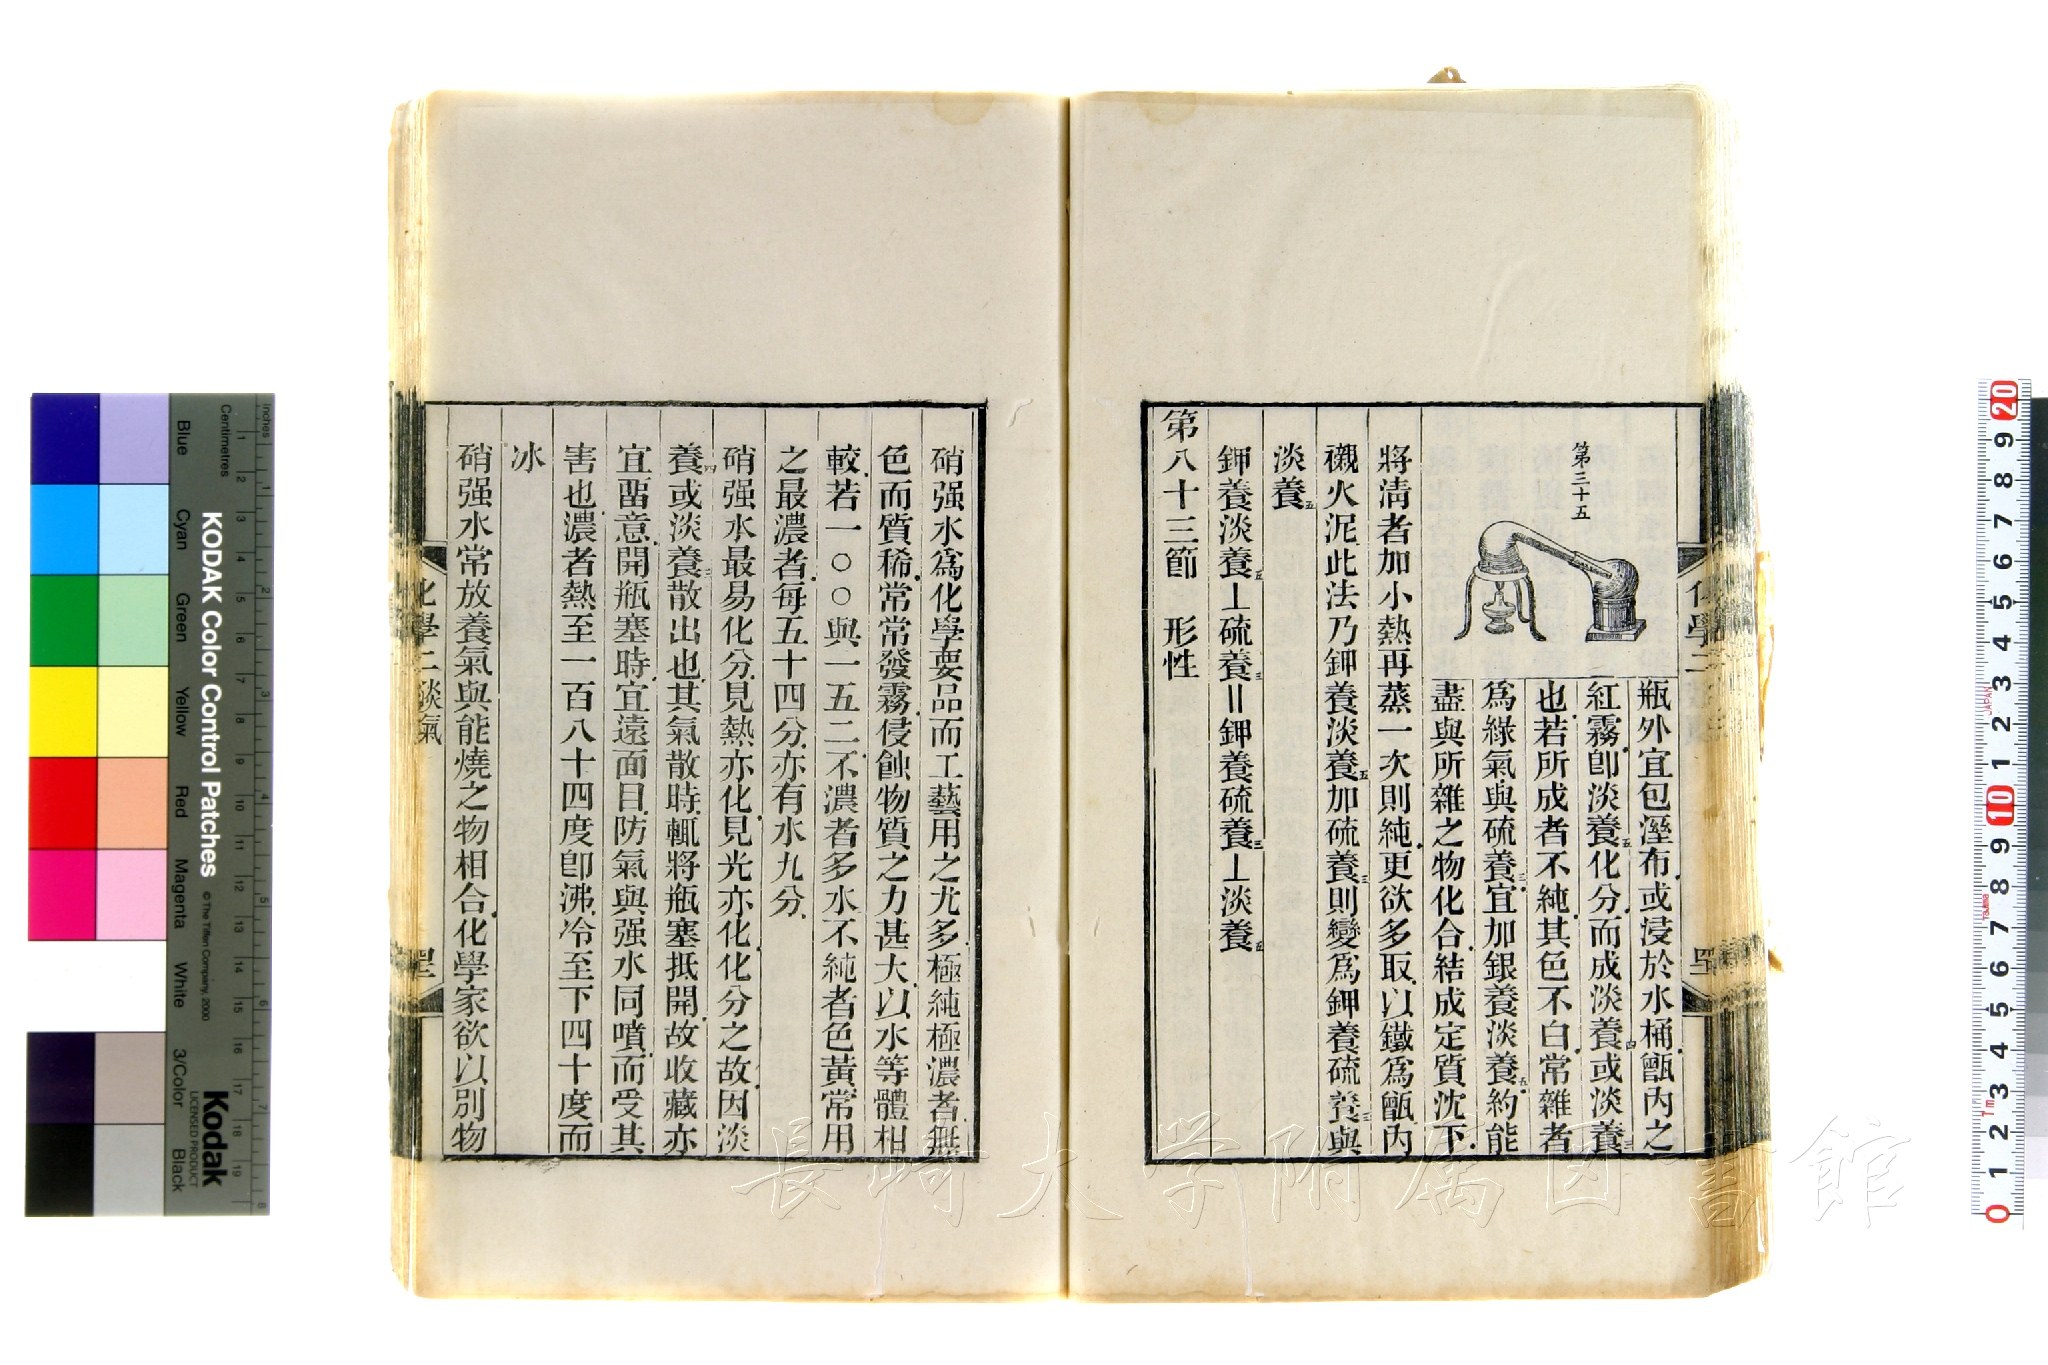 第三十五
瓶外宜包溼布或浸於水桶甑內之
紅霧卽淡養五化分而成淡養四或淡養三
也若所成者不純其色不白常雜者
爲綠氣與硫養三宜加銀養淡養五約能
盡與所雜之物化合結成定質沈下
將淸者加小熱再蒸一次則純更欲多取以鐵爲甑內
襯火泥此法乃鉀養淡養五加硫養三則變爲鉀養硫養三與
淡養五
鉀養淡養五⊥硫養三॥鉀養硫養三⊥淡養五
第八十三節 形性
化學二
硝强水爲化學要品而工藝用之尤多極純極濃者無
色而質稀常常發霧侵蝕物質之力甚大以水等體相
較若一○○與一五二不濃者多水不純者色黃常用
之最濃者每五十四分亦有水九分
硝强水最易化分見熱亦化見光亦化化分之故因淡
養四或淡養三散出也其氣散時輒將瓶塞抵開故收藏亦
宜畱意開瓶塞時宜遠面目防氣與强水同噴而受其
害也濃者熱至一百八十四度卽沸冷至下四十度而
冰
硝强水常放養氣與能燒之物相合化學家欲以別物
化學二 淡氣
長崎大学附属図書館
KODAK Color Control Patches
© The Tiffen Company, 2000
Kodak
LICENSED PRODUCT
Inches
Centimetres
Blue
Cyan
Green
Yellow
Red
Magenta
White
3/Color
Black
1 2 3 4 5 6 7 8 9 10 11 12 13 14 15 16 17 18 19
1 2 3 4 5 6 7 8
0 1 2 3 4 5 6 7 8 9 10 1 2 3 4 5 6 7 8 9 20
JAPAN